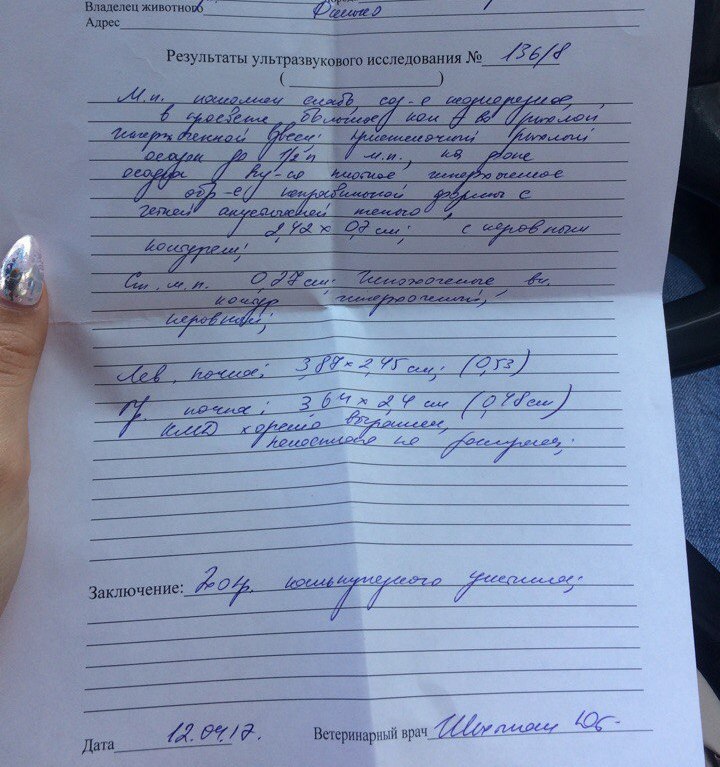 Владелец животного
Адрес
Результаты ультразвукового исследования № 136/8
( )
М.п. наполнен слабо сод-е неоднородное,
в просвете большое кол-во рыхлой
гиперэхогенной взвеси; пристеночный рыхлый
осадок до 1/2 м.п., на фоне
осадка плотное гиперэхогенное
обр-е неправильной формы с
акустической тенью,
2,42 × 0,7 см; с неровными
контурами;
Ст. м.п. 0,27 см; вн.
контур гиперэхогенный,
неровный;
Лев. почка: 3,87 × 2,45 см; (0,53)
Пр. почка: 3,64 × 2,4 см (0,48 см)
КМД хорошо выражен,
не расширена;
Заключение: Эхопр. калькулезного уроцистита;
Дата 12.04.17.
Ветеринарный врач